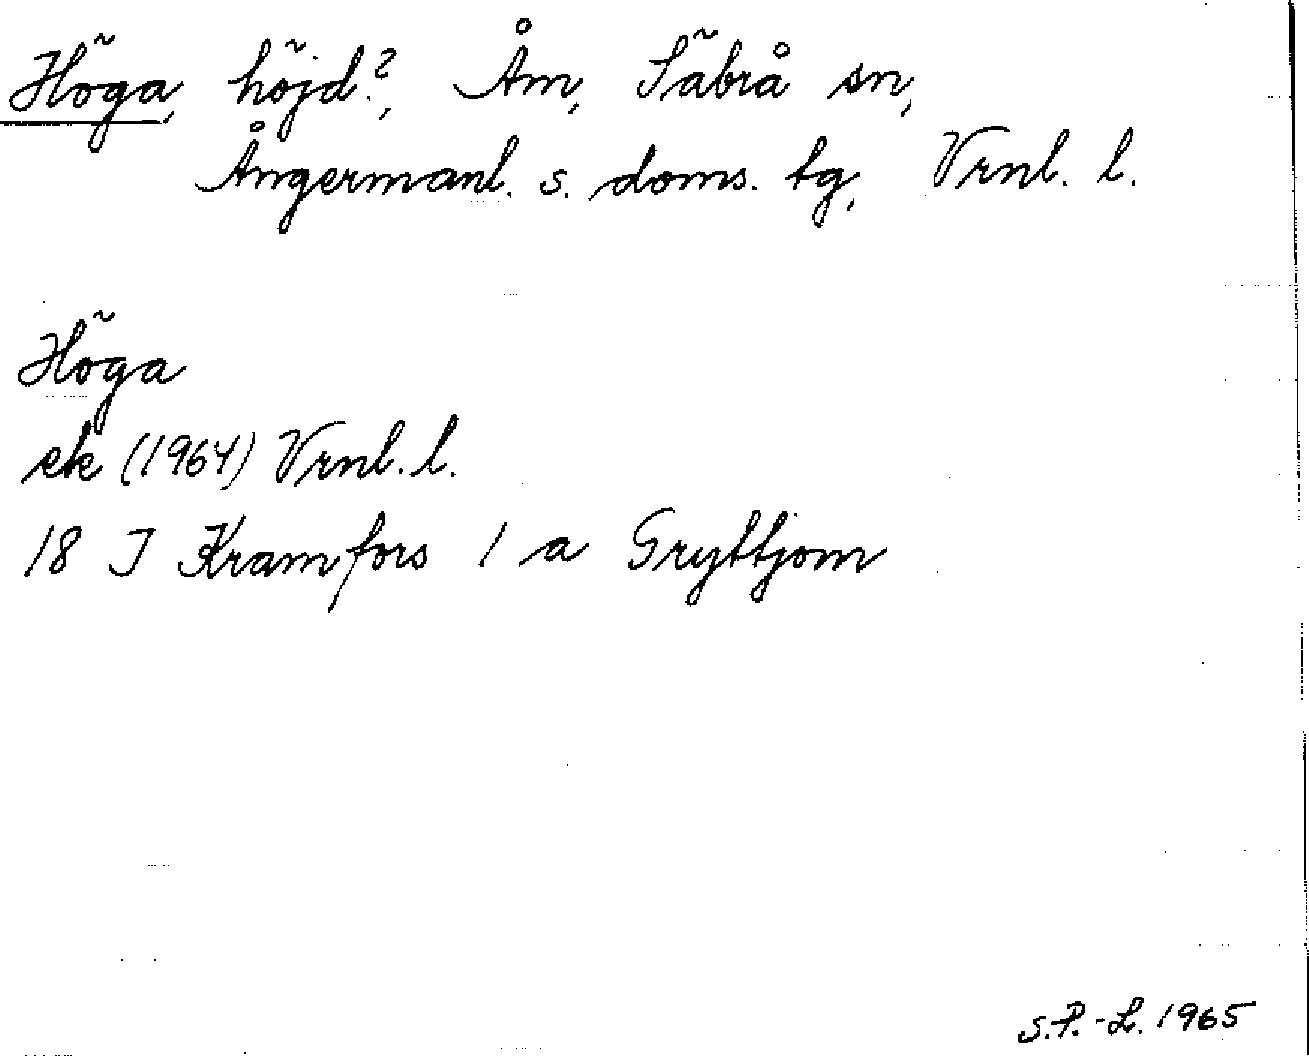 Höga, höjd?, Åm, Säbrå sn,
Ångermanl. s. doms. tg, Vrnl. l.
Höga
ek (1964) Vrnl. l.
18 J Kramfors 1 a Gryttjom
S.P.-L. 1965